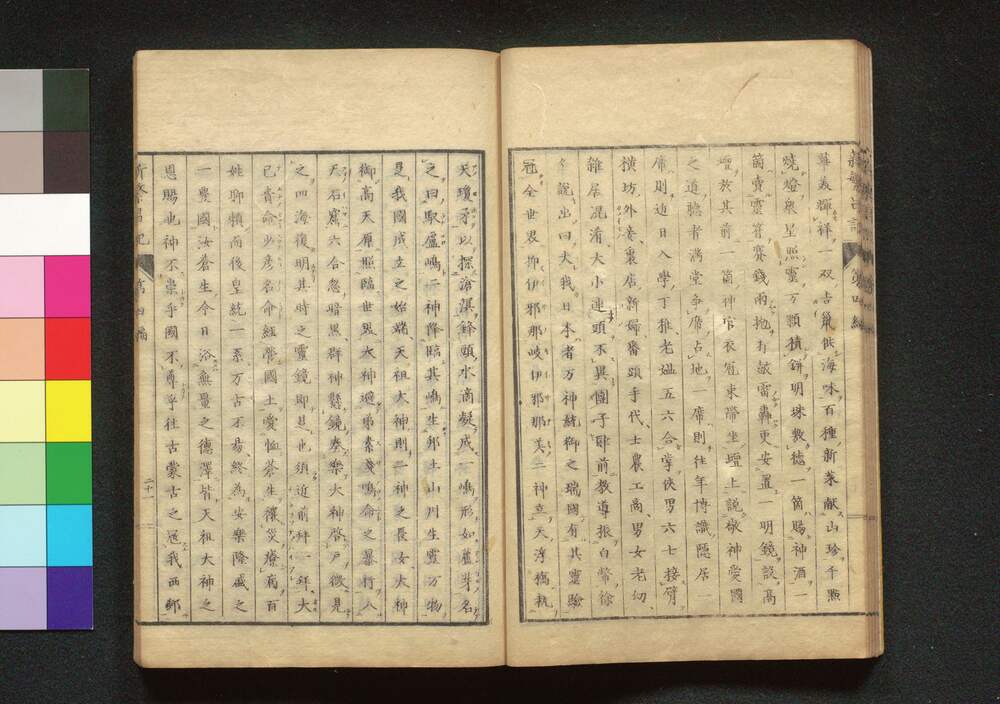 幕表輝祥一双古箇供海味百種新菜献山珍千点
焼燈衆星照霊万顆積餅明珠数徳一箇賜神酒一
箇売霊符賽銭雨抛打鼓雷轟更安置一明鏡談高
壇於其前一箇神官衣冠束帯坐壇上説敬神愛国
之道聴者満堂争席占地一席則往年博識隠居一
席則近日入学丁稚老媼五六合掌侠男六七接臂
横坊外妾裏店新婦番頭手代士農工商男女老幼
雑居混淆大小連頭不異団子串前教導振白幣徐
々説出曰夫我日本者万神統御之瑞国有其霊験
冠全世界抑伊邪那岐伊邪那美二神立天浮橋執
天瓊矛以探滄溟鋒頭水滴凝成一嶋形如蘆芽名
之曰馭廬嶋二神降臨其嶋生邦土山川生霊万物
是我国成立之始端天祖大神則二神之長女大神
御高天原照臨世界大神避弟素戔嗚命之暴行入
天石窟六合忽暗黒群神懸鏡奏楽大神啓戸微見
之四海復明其時之霊鏡即是也須近前拝一拝大
己貴命少彦名命経営国土愛恤蒼生禳災療病百
姓聊頼而後皇統一系万古不易終為安楽隆盛之
一豊国汝蒼生今日浴無量之徳沢皆天祖大神之
恩賜也神不崇乎国不尊乎往古蒙古之冦我西鄙
新繁昌記 第四編 二十一